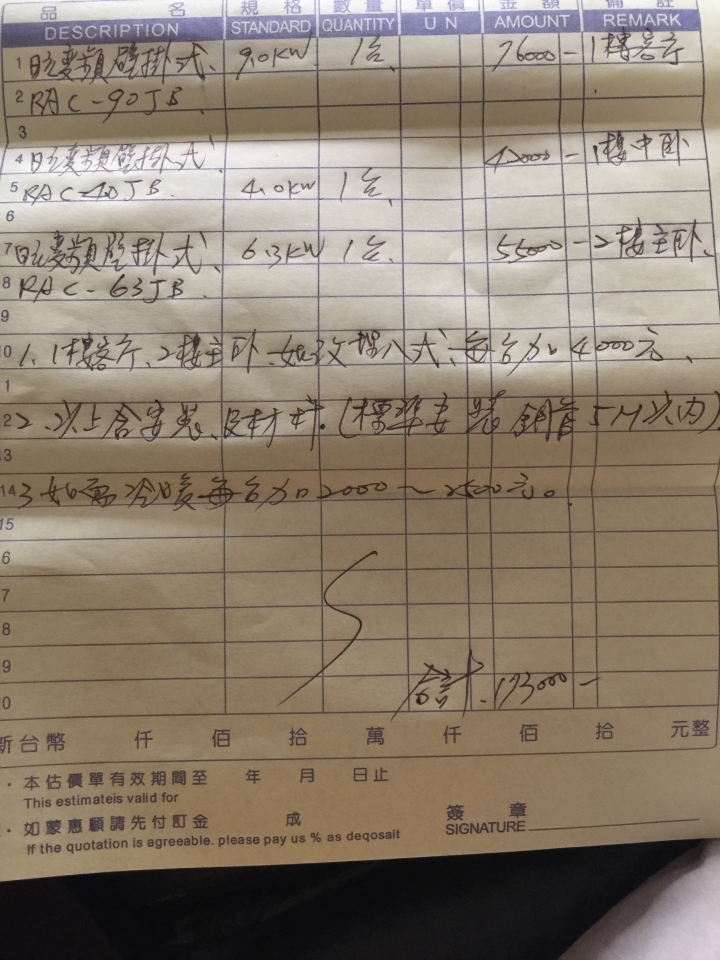 品 名 規 格 數 量 單 價 金 額 備 註
DESCRIPTION STANDARD QUANTITY U N AMOUNT REMARK
1 日立變頻壁掛式、 9.0KW 1台、 76000- 1樓客厅
2 RAC-90JB.
3
4 日立變頻壁掛式 42000- 1樓中卧
5 RAC-40JB. 4.0KW 1台、
6
7 日立變頻壁掛式、 6.3KW 1台、 55000- 2樓主卧、
8 RAC-63JB.
9
0 1、1樓客厅、2樓主卧、如改埋入式、每台加4000元、
1
2 2、以上含安裝、及材料.(標準安裝銅管5M以內)
3
14 3如需冷暖每台加2000~2500元。
15
6
7
8
9 合計、173000-
0
新台幣 仟 佰 拾 萬 仟 佰 拾 元整
・本估價單有效期間至 年 月 日止
This estimateis valid for
・如蒙惠顧請先付訂金 成 簽 章
If the quotation is agreeable. please pay us % as deqosait SIGNATURE